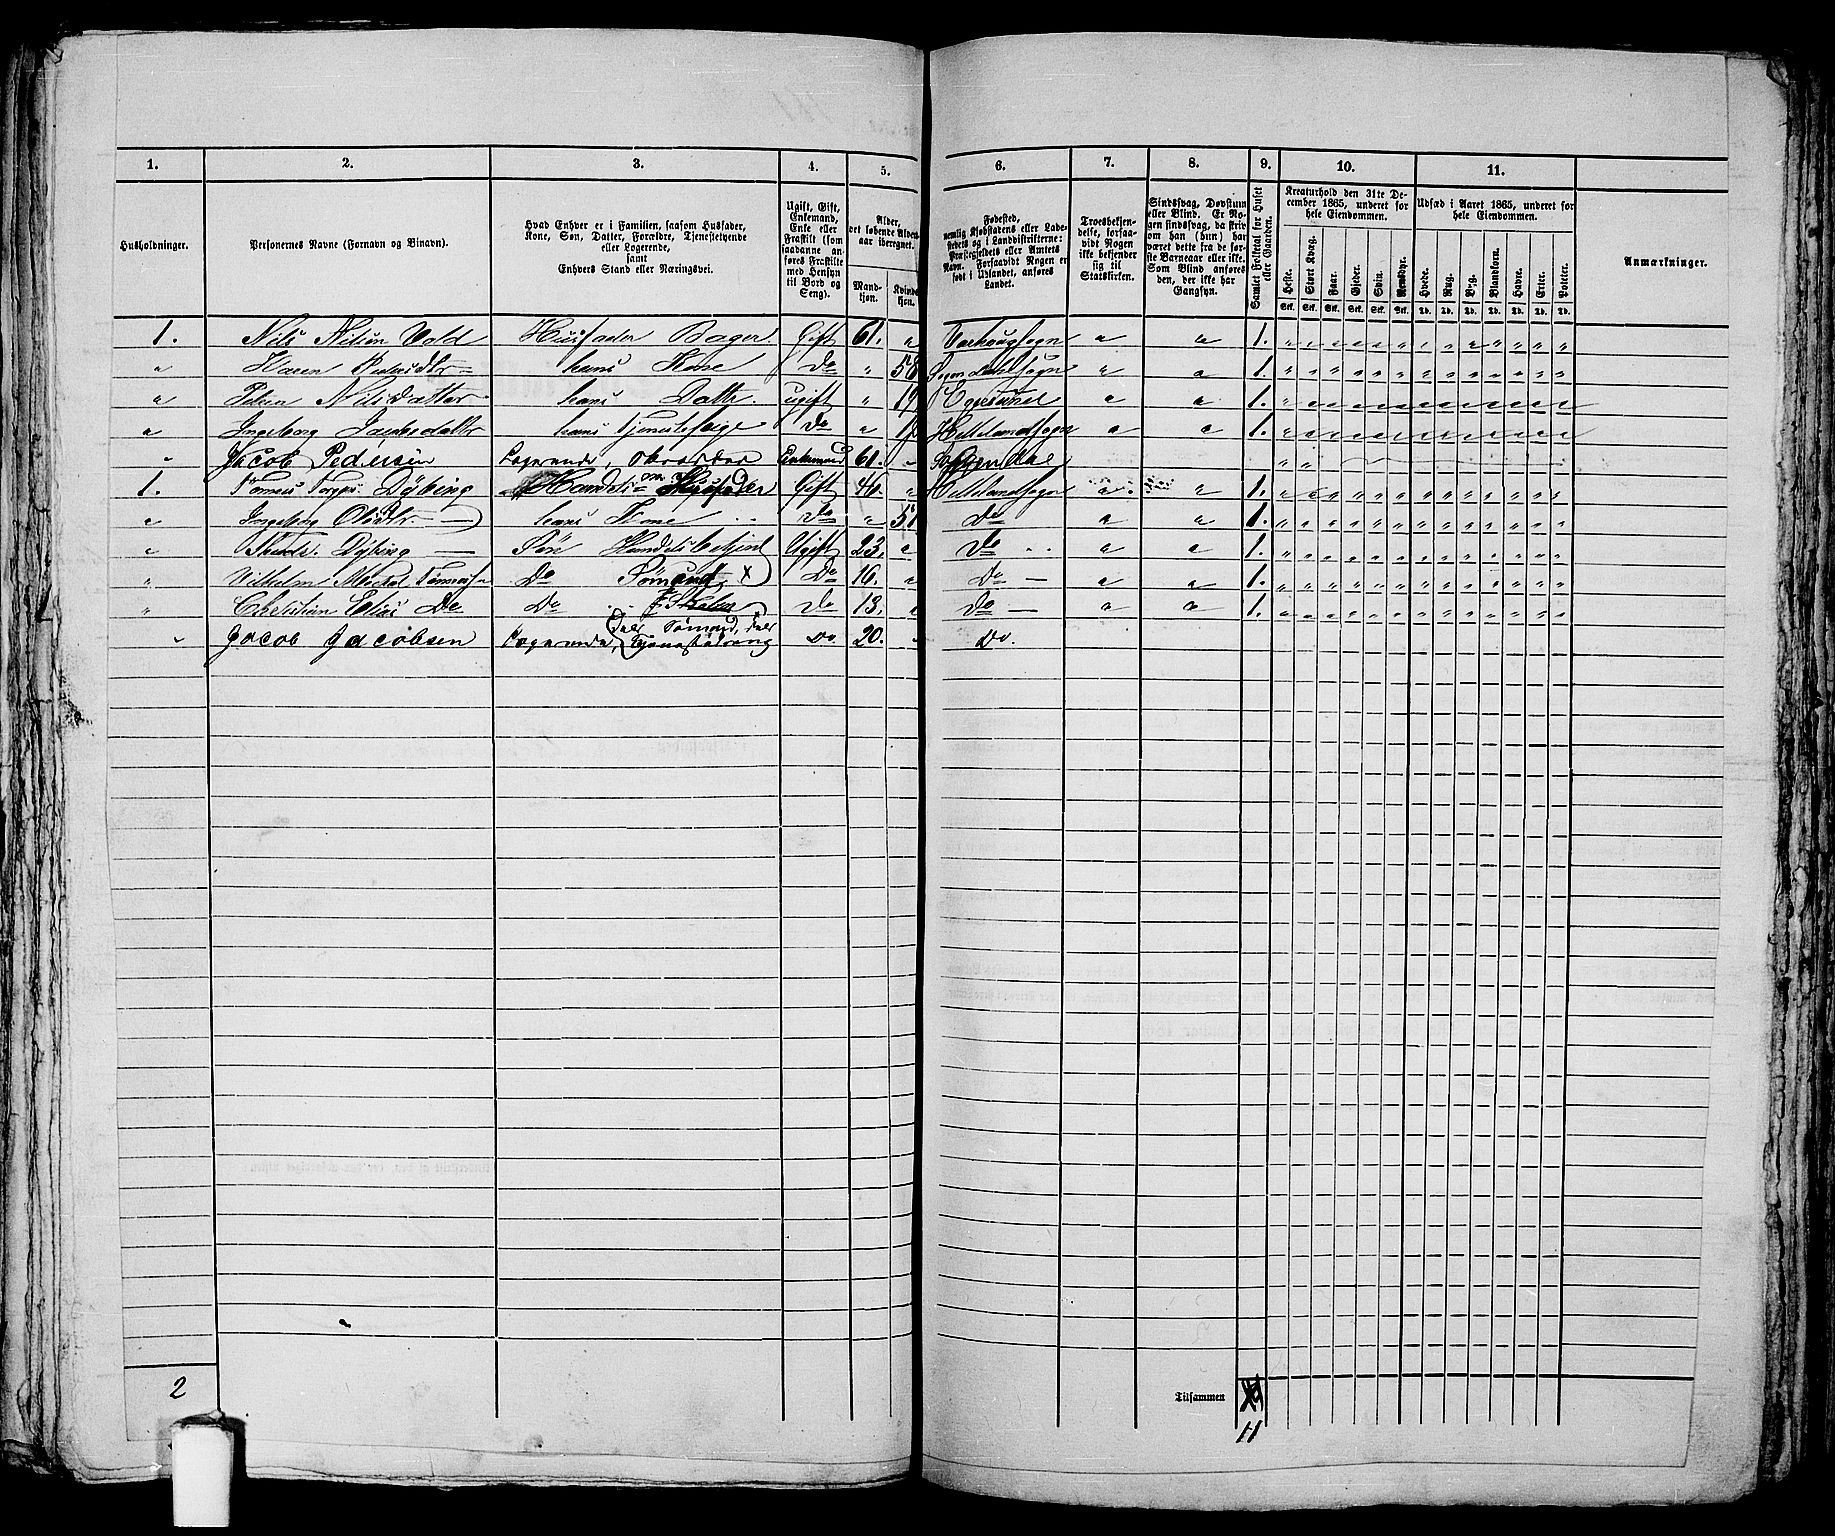 1. 2. 3. 4. 5. 6. 7. 8. 9. 10. 11.
Husholdninger.
Personernes Navne (Fornavn og Binavn).
Hvad Enhver er i Familien, saasom Husfader,
Kone, Søn, Datter, Forældre, Tjenestetyende
eller Logerende,
samt
Enhvers Stand eller Næringsvei.
Ugift, Gift,
Enkemand,
Enke eller
Fraskilt (som
saadanne an-
føres Fraskilte
med Hensyn
til Bord og
Seng).
Alder,
det løbende Alders-
aar iberegnet.
Mand-
kjøn.
Kvinde-
kjøn.
Fødested,
nemlig Kjøbstadens eller Lade-
stedets og i Landdistrikterne:
Præstegjeldets eller Amtets
Navn. Forsaavidt Nogen er
født i Udlandet, anføres
Landet.
Troesbekjen-
delse, forsaa-
vidt Nogen
ikke bekjender
sig til
Statskirken.
Sindssvag, Døvstum
eller Blind. Er No-
gen sindssvag, da skriv
om han (hun) har
været dette fra de før-
ste Barneaar eller ikke.
Som Blind anføres
den, der ikke har
Gangsyn.
Samlet Folketal for Huset
eller Gaarden.
Kreaturhold den 31te De-
cember 1865, underet for
hele Eiendommen.
Heste. Stort Kvæg. Faar. Gjeder. Svin. Rensdyr.
Stk. Stk. Stk. Stk. Stk. Stk.
Udsæd i Aaret 1865, underet for
hele Eiendommen.
Hvede. Rug. Byg. Blandkorn. Havre. Erter. Poteter.
Td. Td. Td. Td. Td. Td. Td.
Anmærkninger.
1. Nils Nilsen Vold Husfader Bager Gift 61. " Varhougsogn " " 1.
" Karen hans Kone Do " 58 Sogndalsogn " " 1.
" Nilsdatter hans Dattr. ugift " Egersund " " 1.
" Ingeborg Jacobsdattr hans Tjenestepige Do " Hellelandsogn " " 1.
" Jacob Pedersen Logerende, Enkemand 61. " Sogendal
1. Tønnes Dybing Handels Husfader Gift 44. " Hellelandsogn " " 1.
" Ingeborg Olsdtr — hans Kone Do " 51 Do " " 1.
" Dybing — Søn Handelsbetjent Ugift 23. " Do " " 1.
" Vilhelm Do Sømand X Do 16. " Do — " " 1.
" Christian Elias Do Do Do 13. " Do — " " 1.
" Jacob Jacobsen Logerende, (deels Sømand, deels
Tjenestedreng Do. 20. " Do.
2
Tilsammen
11